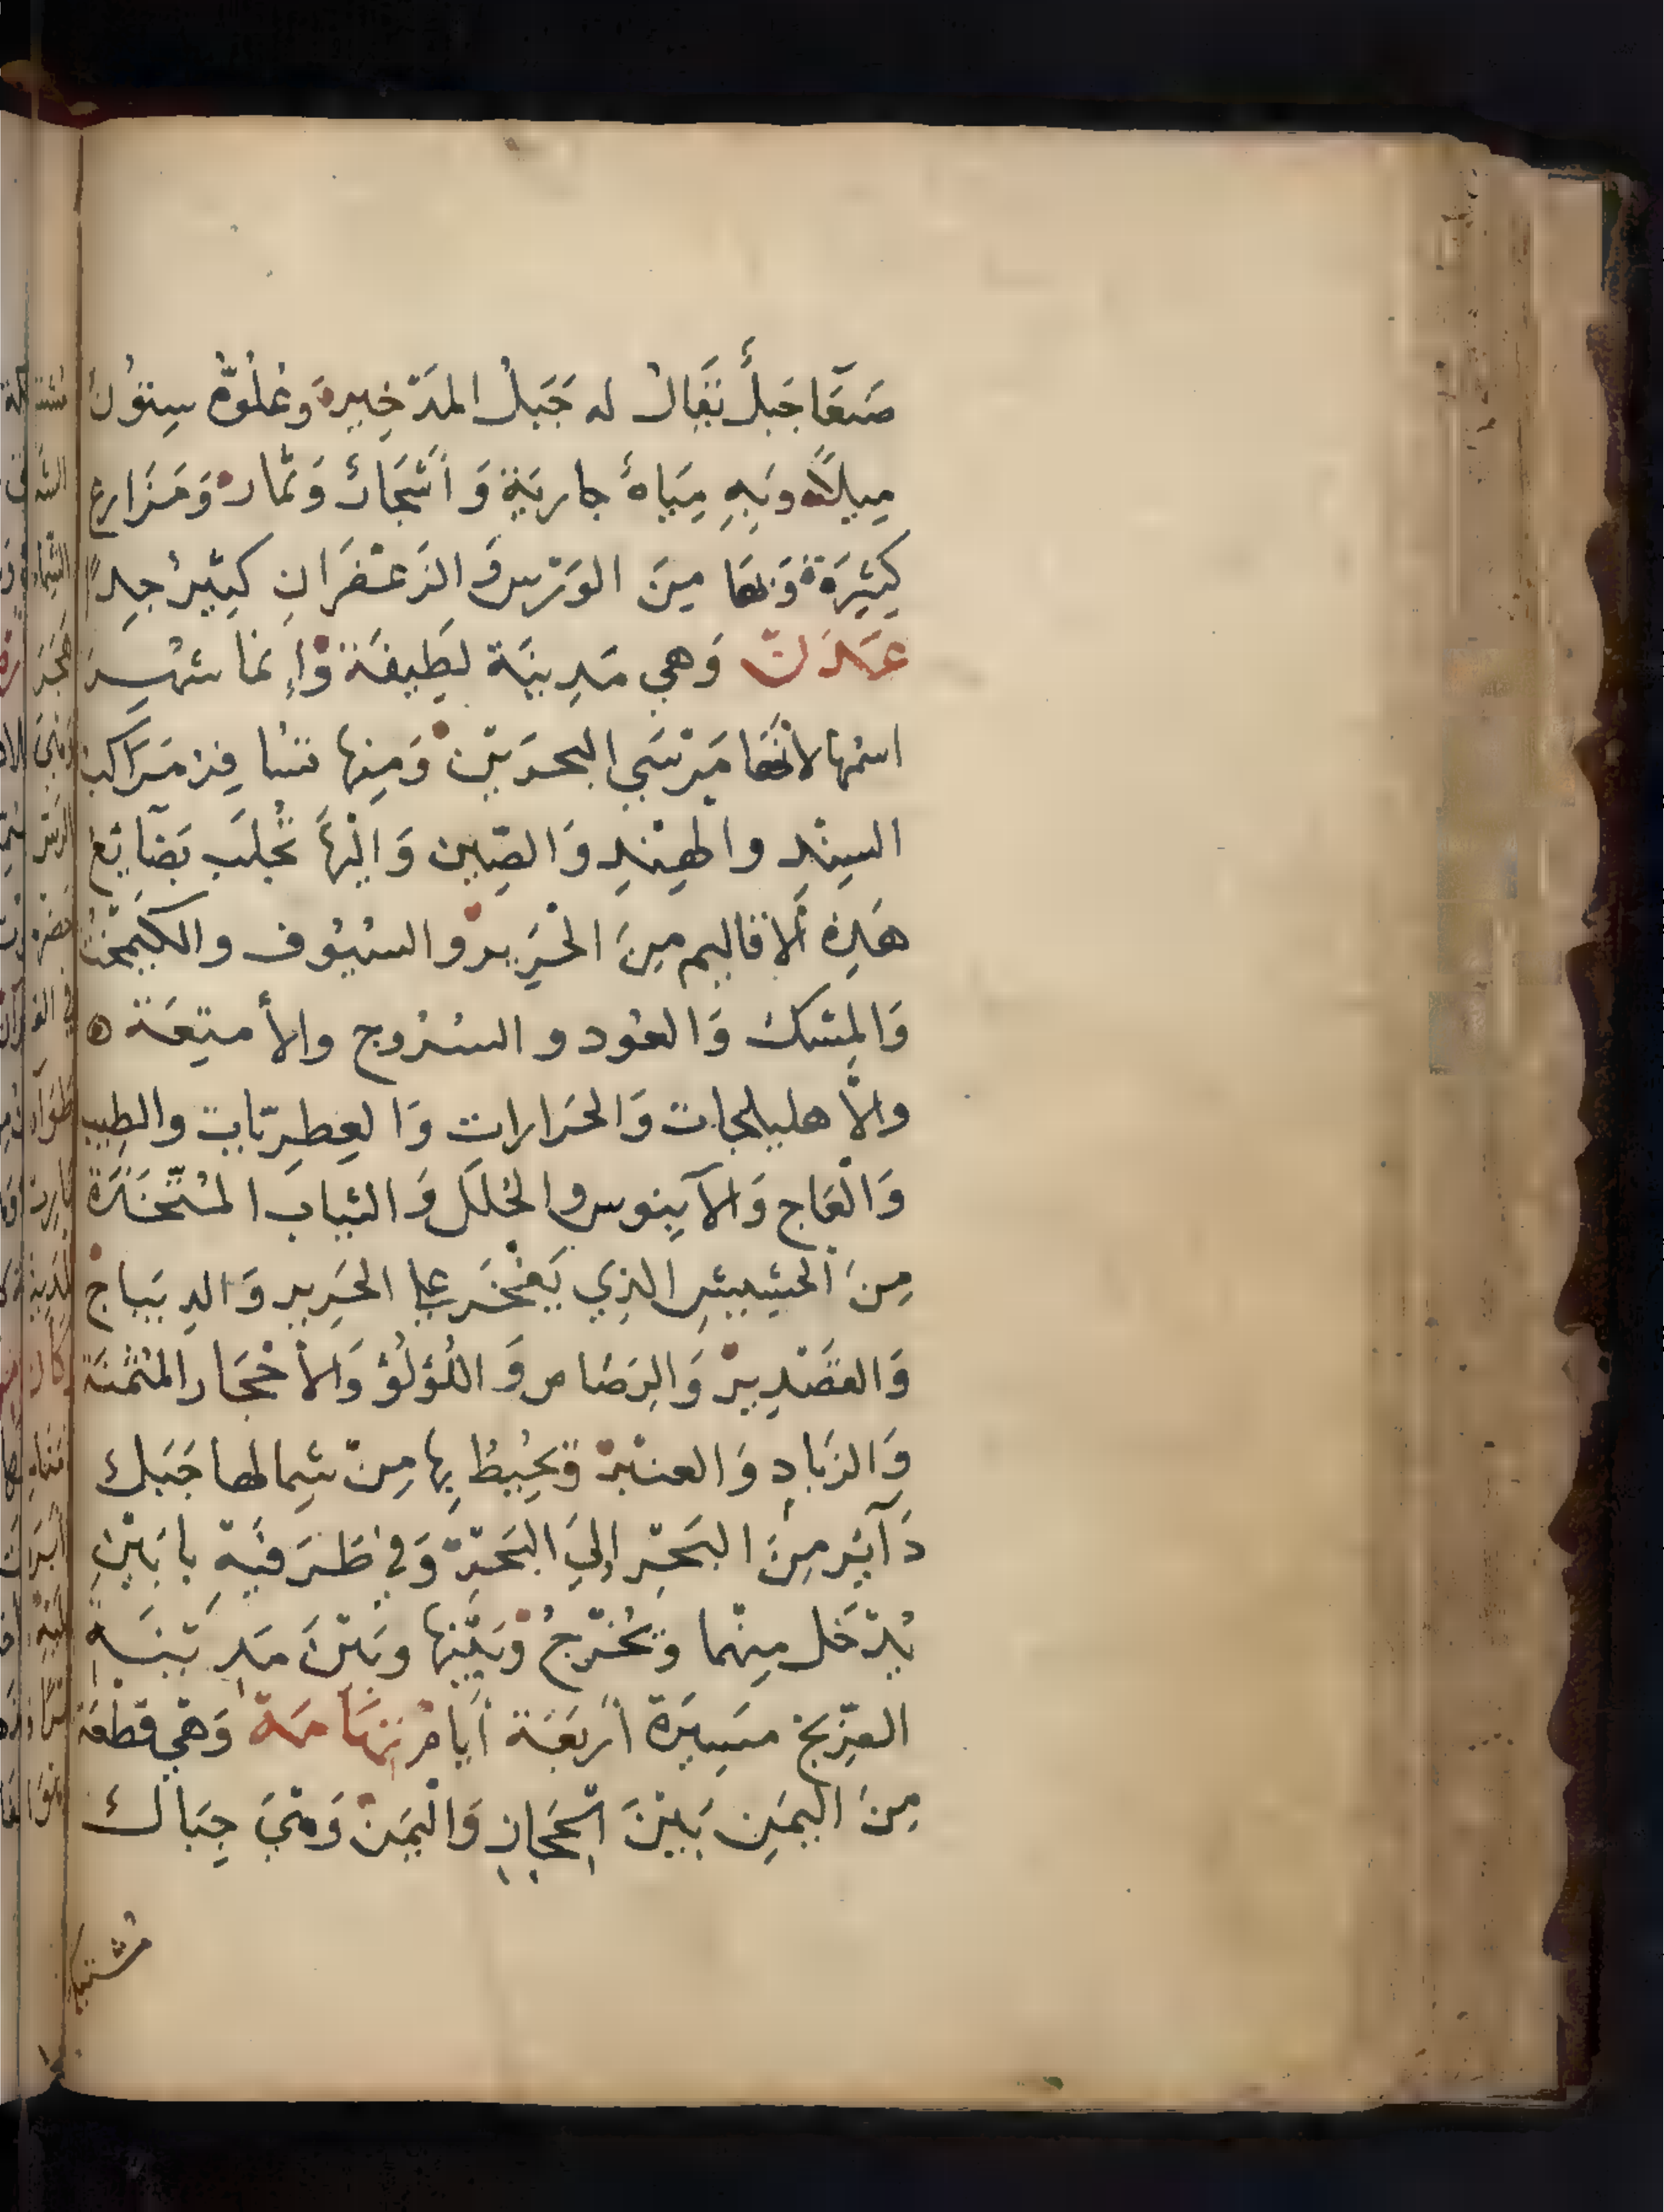 صَنعَا جَبلٌ يُقَالُ له جَبَلُ المدَخِيره وَعُلُوُّهُ سِتوُنَ
مِيلاً وَبِهِ مِيَاهٌ جاريَة وَأشجَارٌ وَثمار وَمَزَارع
كَثِيَرة وَبهَا مِنَ الوَرْس وَالزَعفَرَانِ كثِيرٌ جِداً
عَدَن وَهي مَدِينَة لَطِيفَة وَإِنما شهر
اسمُهَا لأنهَا مَرْسَي البحرَين وَمِنهَا تسَا فِرُ مَرَاكب
السِندِ والهِندِ وَالصِين وَإليْهَا تُجلَب بَضَآيَع
هَذِه الأقاليم مِنَ الحَرِير والسُيُوف والكَيمخت
وَالمِسك وَالعُود والسُرُوج والأمتِعَة
والأهليلجات وَالحَرارات وَالعِطرِيات والطِيب
وَالْعَاج وَالآبِنوس والحُللَ وَالثيَاب المتَّخَذَة
مِنَ الحَشِيش الذِي يَفتْخَر علي الحَرِير وَالدِيبَاج
وَالقَصْدِير وَالرَصَاص وَاللُؤلُؤ وَالأحْجَار المُثمنَة
وَالزَبادِ وَالعنْبر وَيحُيِطُ بِهَا مِنْ شِمالهَا جَبَل
دَآئِر مِنَ البَحَرِ إلَي البَحَر وَفي طَرَفَيه بَابَيْنِ
يُدْخَل مِنهُما وَيُخْرجُ وَبَيْنها وبَيْنَ مَدِينَة
الَزِنج مَسِيَرة أربَعَة أيام تِهَامَة وَهيَ قطعَة
مِنَ اليمَنِ بَيْنَ الحِجَازِ وَاليَمن وَهيَ جِبَال
مُشتبكة